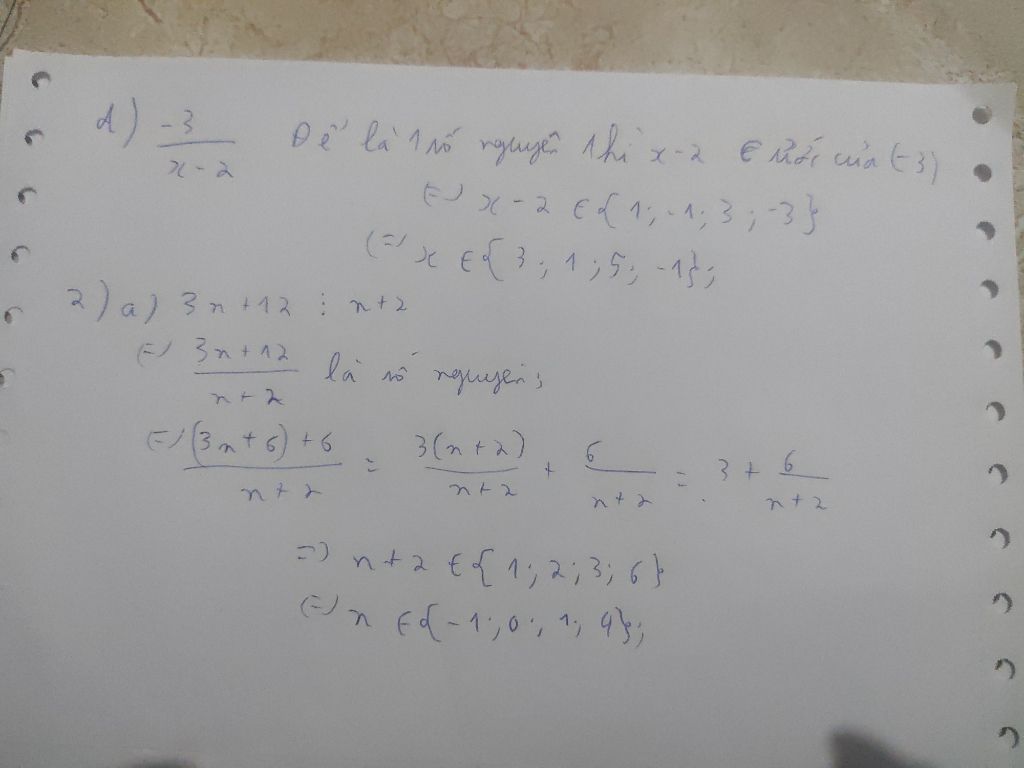 d) -3/(x-2) Để là 1 số nguyên thì x-2 ∈ ước của (-3)
(=) x-2 ∈ {1; -1; 3; -3}
(=) x ∈ {3; 1; 5; -1};
2) a) 3n+12 ⋮ n+2
(=) (3n+12)/(n+2) là số nguyên;
(=) ((3n+6)+6)/(n+2) = 3(n+2)/(n+2) + 6/(n+2) = 3 + 6/(n+2)
=) n+2 ∈ {1; 2; 3; 6}
(=) n ∈ {-1; 0; 1; 4};